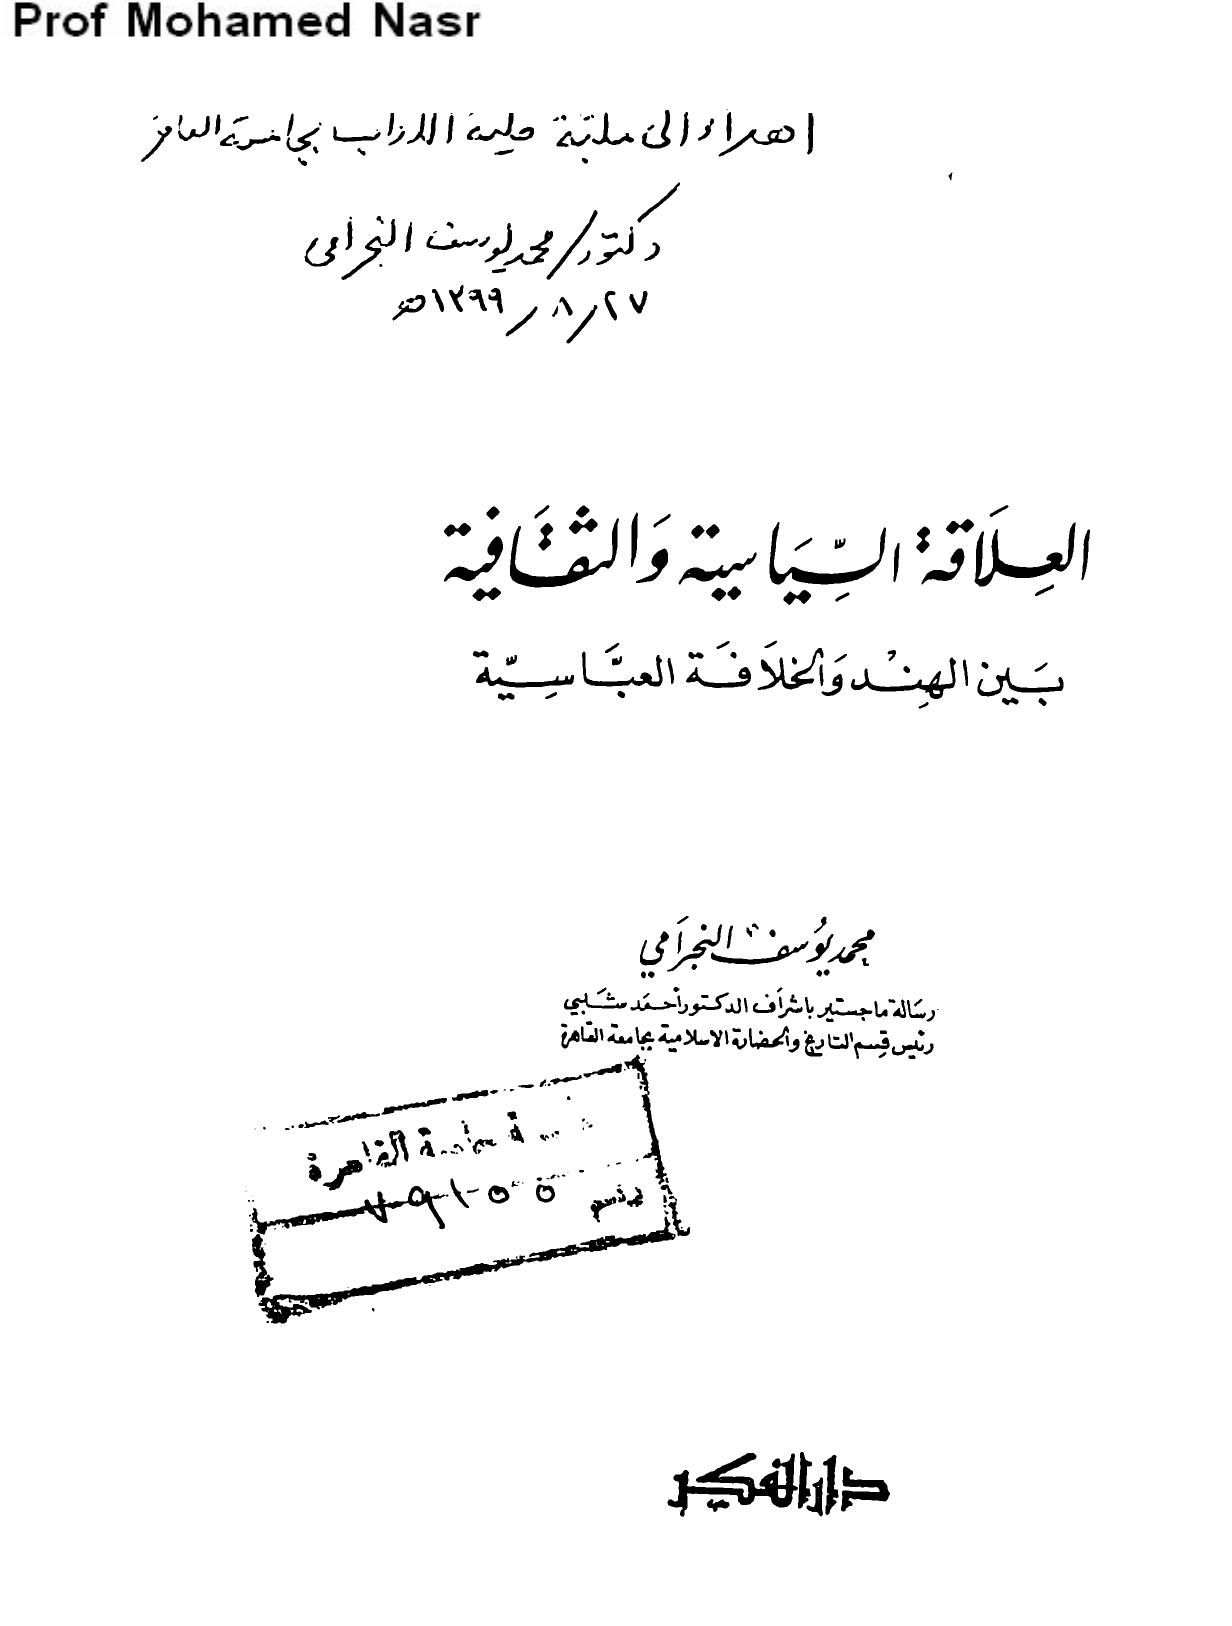 Prof Mohamed Nasr
اهداء الى مكتبة كلية الاداب بجامعة القاهرة
دكتور/ محمد يوسف النجرامى
٢٧/ ٨/ ١٣٩٩ هـ
العِلَاقة السِّيَاسية وَالثقَافية
بَين الهِنْد وَالخلَافَة العبَّاسِيّة
محمد يوُسف النجرَامي
رسَالة ماجستير باشرَاف الدكتور أحمَد شَلبي
رئيس قِسم التاريخ والحضارة الاسلامية بجامعة القاهرة
جامعة القاهرة
٧٩١٥٥
دار الفكر